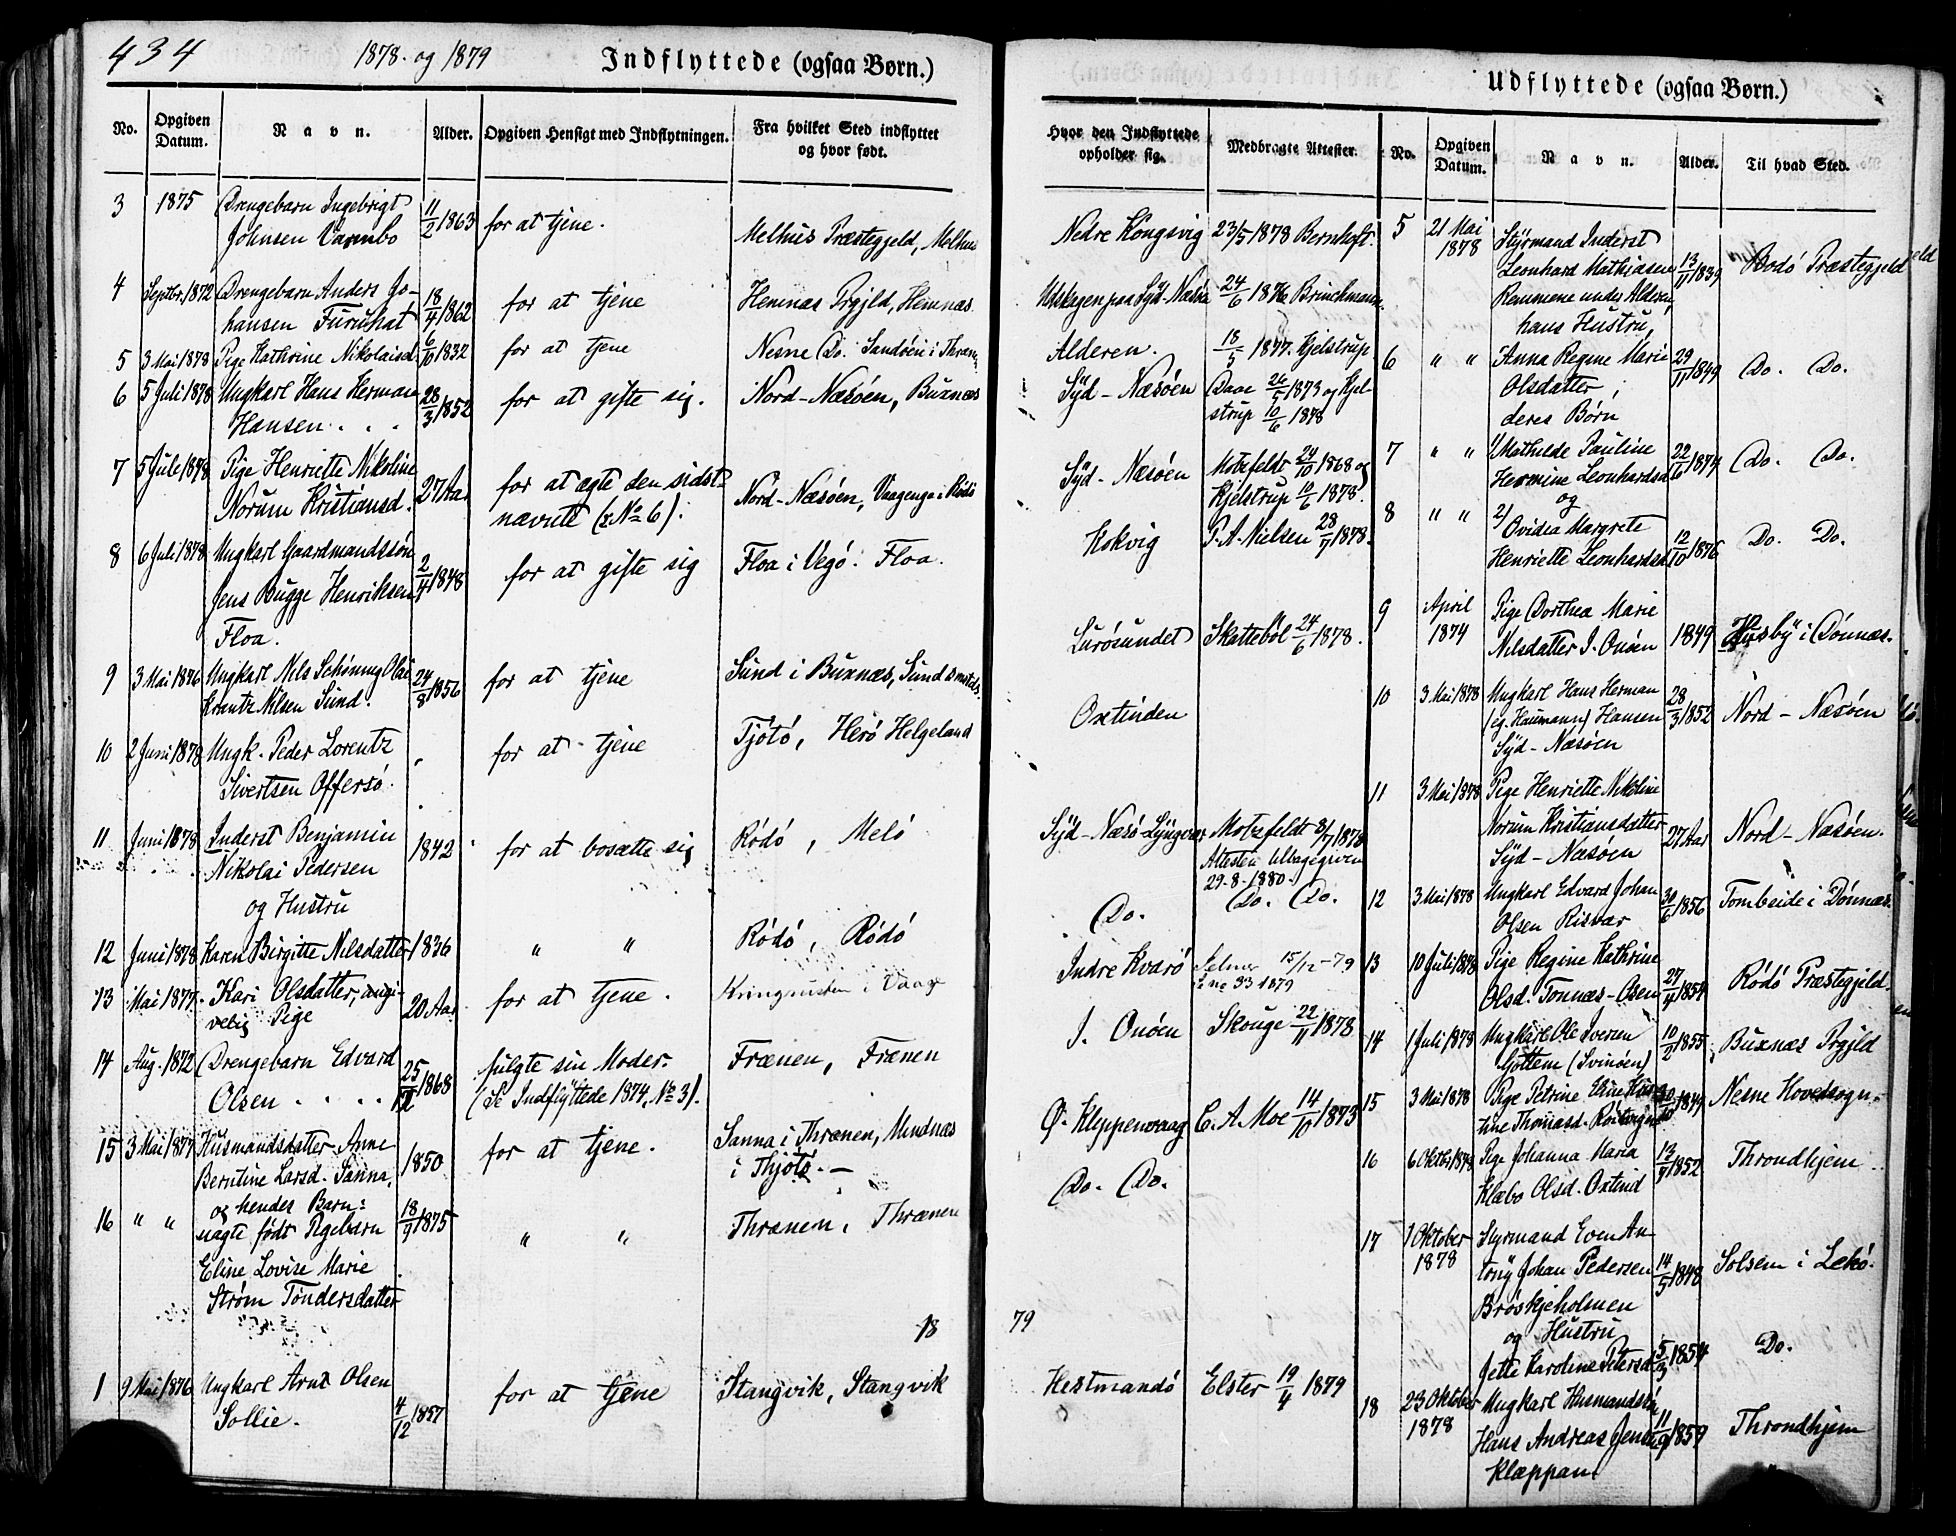 434
1878. og 1879
Indflyttede (ogsaa Børn.)
No. Opgiven Datum. Navn. Alder. Opgiven Hensigt med Indflytningen. Fra hvilket Sted indflyttet og hvor født.
3 1875 Drengebarn Ingebrigt 11/2 1863 for at tjene.
Johnsen Varmbo Melhus Præstegjeld, Melhus
4 Septbr. 1872 Drengebarn Anders Jo- 18/4 1862 for at tjene Hemnæs Prgjld, Hemnæs
hansen Furuhat
5 3 Mai 1878 Pige Kathrine Nikolaisd. 6/10 1832 for at tjene Nesne Do. Sandøen i Thræn
6 5 Juli 1878 Ungkarl Hans Herman 28/3 1852 for at gifte sig. Nord-Næsøen, Buxnæs
Hansen . . .
7 5 Juli 1878 Pige Henriette Nikoline 27 Aar for at ægte den sidst-
Norum Kristiansd. nævnte (: No 6). Nord-Næsøen, Vaagenge i Rödö
8 6 Juli 1878 Ungkarl Gaardmandssøn 2/4 1848 for at gifte sig Floa i Vegö. Floa.
Jens Bugge Henriksen
Floa.
9 3 Mai 1876 Ungkarl Nils Schöning Olai 24/8 1856 for at tjene Sund i Buxnæs, Sund
Krantz Nilsen Sund.
10 2 Juni 1878 Ungk. Peder Lorentz for at tjene Tjötö, Herö Helgeland
Sivertsen Offersö.
11 Juni 1878 Inderst Benjamin 1842 for at bosætte sig Rödö, Melö
Nikolai Pedersen
og Hustru
12 Juni 1878 Karen Birgitte Nilsdatter 1836 " " Rödö, Rödö
13 Mai 1877 Kari Olsdatter, angi- 20 Aar for at tjene. i Vaag
velig Pige
14 Aug. 1872 Drengebarn Edvard 25/12 1868 fulgte sin Moder. Frænen, Frænen
Olsen . . . . (Se Indflyttede 1874, No 3).
15 3 Mai 1877 Husmandsdatter Anne 1850 for at tjene. Sanna i Thrænen, Mindnæs
Berntine Larsd. Sanna, i Thjötö. —
og hendes Barn:
16 " " uægte født Pigebarn 18/9 1875 " " Thrænen, Thrænen
Eline Lovise Marie
Strøm Tøndersdatter
18
1 9 Mai 1876 Ungkarl Arnt Olsen 4/12 1857 for at tjene Stangvik, Stangvik
Sollie.
Udflyttede (ogsaa Børn.)
Hvor den Indflyttede opholder sig. Medbragte Attester. No. Opgiven Datum. Navn. Alder. Til hvad Sted.
Nedre Kongsvig 23/5 1878 Bernhoft. 5 21 Mai 1878 Styrmand Inderst
Leonhard Mathiasen 13/11 1839 Bodö Præstegjeld
Udskagen paa Syd-Næsö 24/6 1876 Brinchmann. Remmene under Alderen,
hans Hustru,
Alderen. 18/5 1877. Kjelstrup. 6 " " Anna Regine Marie 29/11 1849 Do. Do.
Syd-Næsøen Daae 26/5 1873 og Kjel- Olsdatter,
strup 10/6 1878 deres Børn
Syd-Næsøen Motzfeldt 24/10 1868 og 7 " " 1/ Mathilde Pauline 22/10 1874 Do. Do.
Kjelstrup 10/6 1878. Hermine Leonhardsd
og
Kokvig P. A. Nielsen 28/7 1878. 8 " " 2/ Ovidia Margrete
Henriette Leonhardsd 12/10 1876 Do. Do.
Lurösundet Skattebøl 24/6 1878. 9 April 1874 Pige Dorthea Marie
Nilsdatter I. Onöen 1849 Husby i Dönnæs.
Oxtinden 10 3 Mai 1878 Ungkarl Hans Herman
(eg. Haumann) Hansen 28/3 1852 Nord-Næsøen
Syd-Næsøen
11 3 Mai 1878 Pige Henriette Nikoline
Syd-Næsö-Lyngvær Motzfeldt 8/7 1878 Norum Kristiansdatter 27 Aar Nord-Næsøen.
Attesten tilbagegiven Syd-Næsøen
29-8-1880.
Do. Do. Do. 12 3 Mai 1878 Ungkarl Edvard Johan 30/6 1856 Tombside i Dönnæs.
Olsen Risvær
Indre Kvarö 15/12-79 13 10 Juli 1878 Pige Regine Kathrine
1879 Olsd. Tonnæs-Osen 27/4 1854 Rödö Præstegjeld.
I. Onöen Skouge 22/11 1878 14 1 Juli 1878 Ungkarl Ole Iversen 10/2 1855 Buxnæs Prgjld
Gjöttem (Svinöen)
Ø. Kleppenvaag C. A. Moe 14/10 1873 15 3 Mai 1878 Pige Petrine Eline Kris- Nesne Hovedsogn.
tine Thomasd.
Do. Do. 16 6 Oktbr 1878 Pige Johanna Maria 13/9 1852 Throndhjem
Klæbo Olsd. Oxtind
17 1 Oktober 1878 Styrmand Even An-
tony Johan Pedersen 14/5 1848 Solsem i Lekö.
Bröskjeholmen
79
og Hustru
Jette Karoline Petersd 5/3 1854 Do.
Hestmandö Elster 19/4 1879 18 23 Oktober 1878 Ungkarl Husmandssön
Hans Andreas Jensen 11/9 1859 Throndhjem
Klæppan